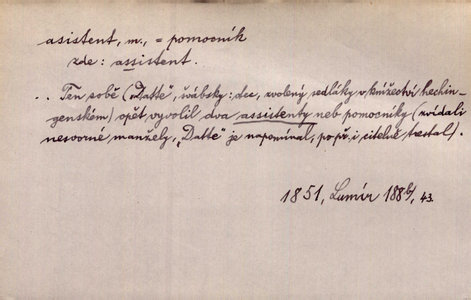 asistent, m., = pomocník
zde: assistent.
.. Ten sobě („Datte", švábsky: dcc, zvolený sedláky v knížectví hechin-
genském) opět vyvolil dva assistenty neb pomocníky (zvídali
nesvorné manžely, „Datte" je napomínal, po př. i citelně trestal).
1851, Lumír 188 /, 43.